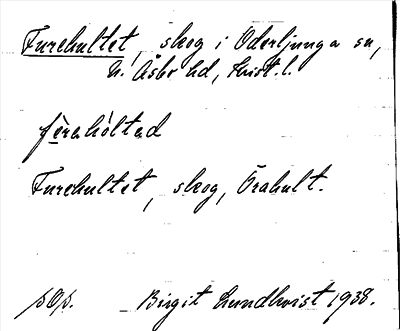 Furehultet, skog i Oderljunga sn,
N. Åsbo hd, Krist. l.
fùrehòltad
Furehultet, skog, Örahult.
pOp. Birgit Lundkvist 1938.